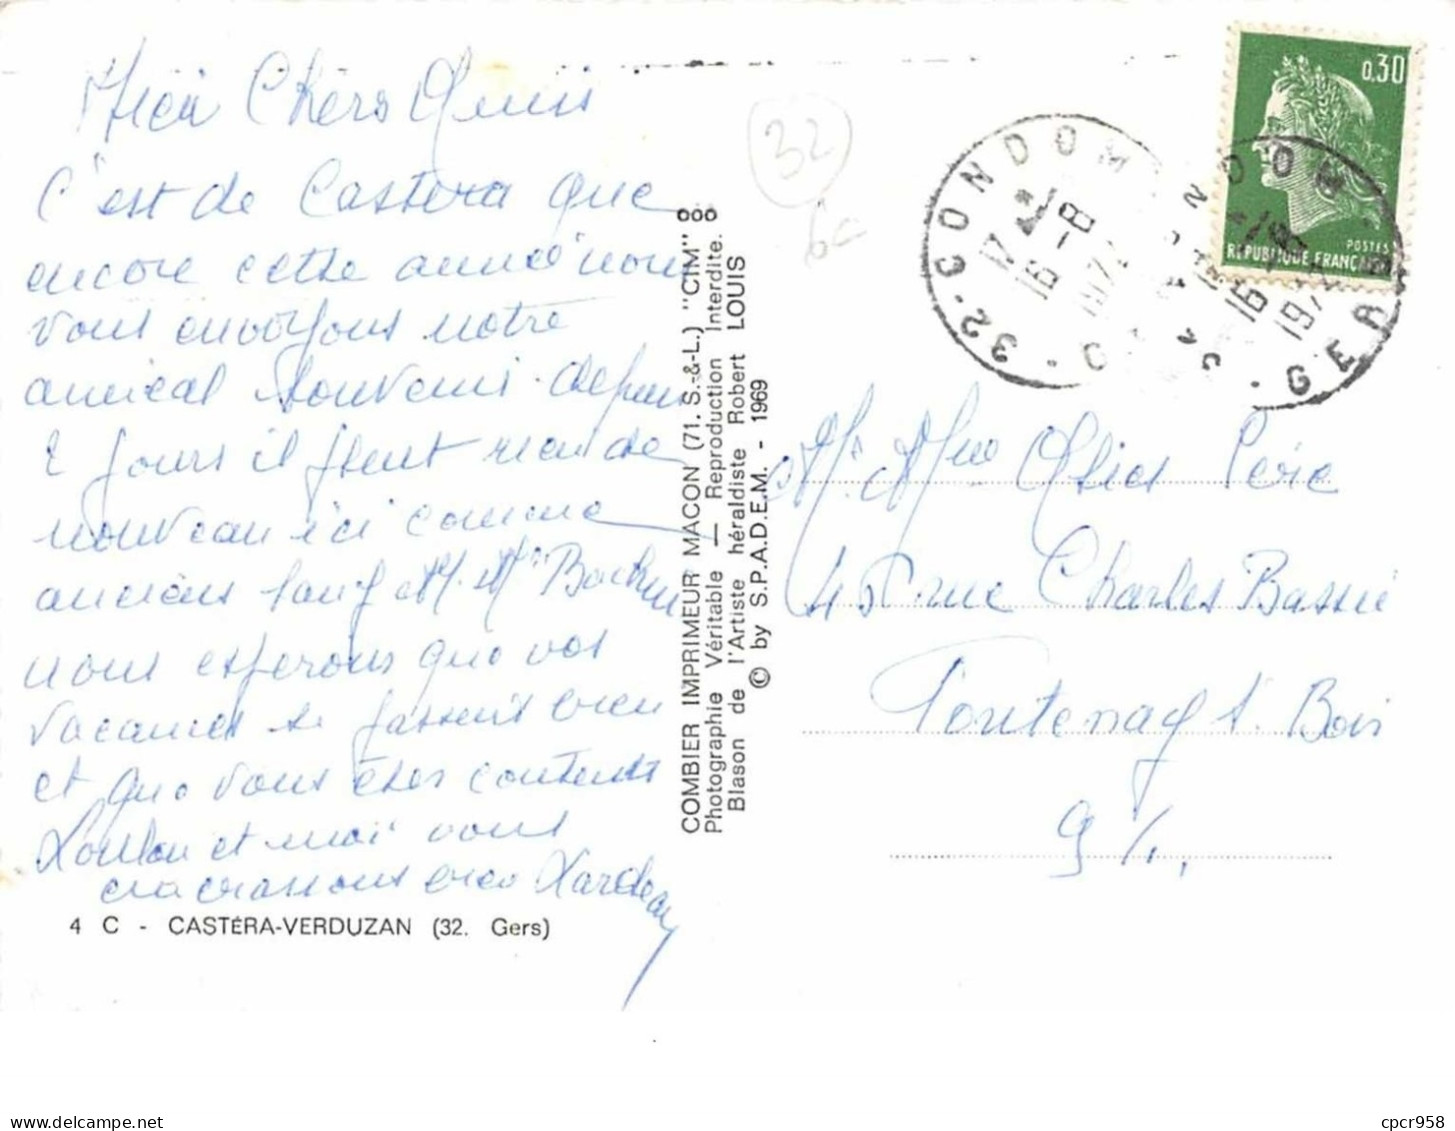 Chers Amis
C'est de Castera que
encore cette année nous
vous envoyons notre
amical souvenir depuis
2 jours il pleut rien de
nouveau ici comme
anciens sauf M. Mme
nous esperons que vos
vacances se passent bien
et que vous êtes contents
Loulou et moi vous
embrassons bien
4 C - CASTÉRA-VERDUZAN (32. Gers)
COMBIER IMPRIMEUR MACON (71. S.-&-L.) "CIM"
Photographie Véritable — Reproduction Interdite.
Blason de l'Artiste héraldiste Robert LOUIS
© by S.P.A.D.E.M. - 1969
32
0,30
POSTES
REPUBLIQUE FRANÇAISE
32-CONDOM
16 -8
GERS
Mr Mme
rue Charles Bassée
Fontenay s. Bois
94.
cpcr958